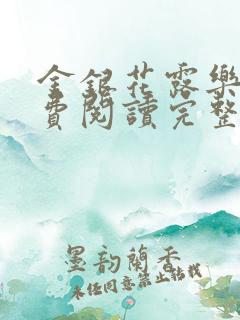 金銀花露樂
費閱讀完整
墨韵蘭香
未任同意禁止结我